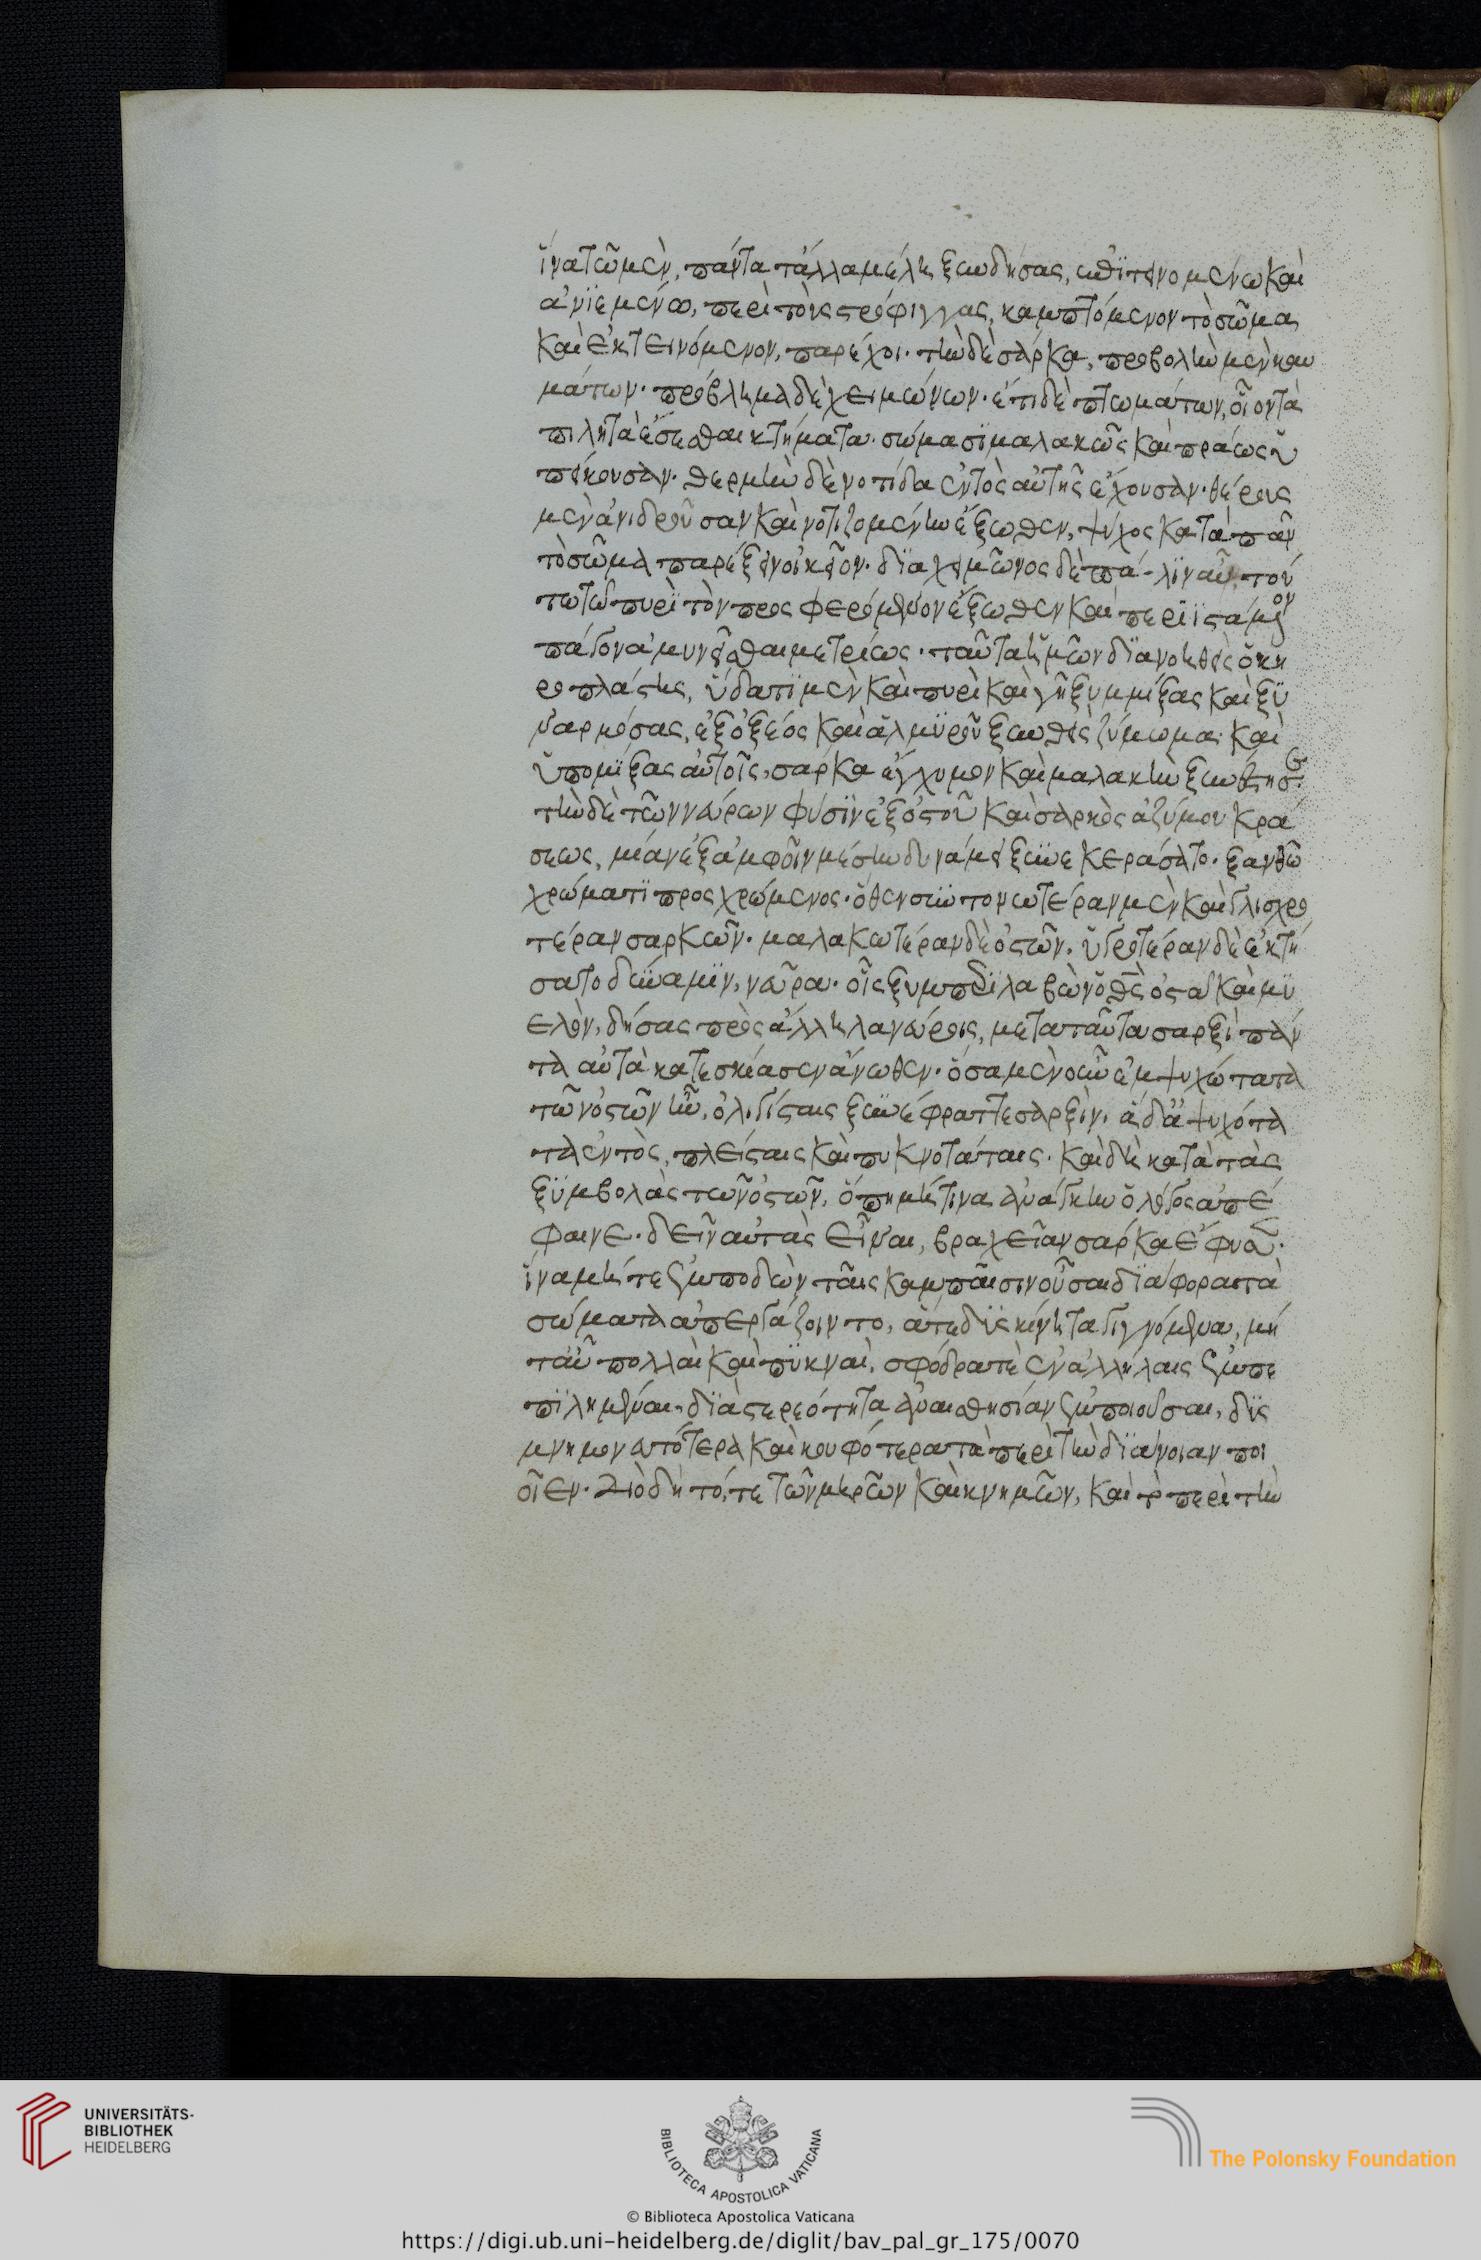 ἵνα τῶ μὲν, πάντα τἄλλα μέλη ξυνδήσας, ἐπιτεινομένω καὶ
ἀνιεμένω, περὶ τοὺς στρόφιγγας, καμπτόμενον τὸ σῶμα
καὶ ἐκτεινόμενον, παρέχοι. τὴν δὲ σάρκα, προβολὴν μὲν καυ
μάτων. πρόβλημα δὲ χειμώνων. ἔτι δὲ πτωμάτων, οἷον τὰ
πιλητὰ ἔσεσθαι κτήματα. σώμασι μαλακῶς καὶ πράως ὑ
πείκουσαν. θερμὴν δὲ νοτίδα ἐντὸς αὑτῆς ἔχουσαν. θέρους
μὲν ἀνιδροῦσαν καὶ νοτιζομένην ἔξωθεν, ψύχος κατὰ πᾶν
τὸ σῶμα παρέξειν οἰκεῖον. διὰ χειμῶνος δὲ πά-λιν αὖ, τού
τω τῶ πυρὶ τὸν προσφερόμενον ἔξωθεν καὶ περιιστάμενον
πάγον ἀμυνεῖσθαι μετρίως. ταῦτα ἡμῶν διανοηθεὶς ὁ κη
ροπλάστης, ὕδατι μὲν καὶ πυρὶ καὶ γῆ ξυμμίξας καὶ ξυ
ναρμόσας, ἐξ ὀξέος καὶ ἁλμυροῦ ξυνθεὶς ζύμωμα. καὶ
ὑπομίξας αὐτοῖς, σάρκα ἔγχυμον καὶ μαλακὴν ξυνέστησε.
τὴν δὲ τῶν νεύρων φύσιν ἐξ ὀστοῦ καὶ σαρκὸς ἀζύμου κρά
σεως, μίαν ἐξ ἀμφοῖν μέσην δυνάμει ξυνεκεράσατο. ξανθῶ
χρώματι προσχρώμενος. ὅθεν συντονωτέραν μὲν καὶ γλισχρο
τέραν σαρκῶν. μαλακωτέραν δὲ ὀστῶν. ὑγροτέραν δὲ ἐκτή
σατο δύναμιν, νεῦρα. οἷς ξυμπεριλαβὼν ὁ θεὸς ὀστᾶ καὶ μυ
ελὸν, δήσας πρὸς ἄλληλα νεύροις, μετὰ ταῦτα σαρξὶ πάν
τα αὐτὰ κατεσκίασεν ἄνωθεν. ὅσα μὲν οὖν ἐμψυχότατα
τῶν ὀστῶν ἦν, ὀλιγίσταις ξυνέφραττε σαρξὶν. ἃ δ' ἀψυχότα
τα ἐντὸς, πλείσταις καὶ πυκνοτάταις. καὶ δὴ κατὰ τὰς
ξυμβολὰς τῶν ὀστῶν, ὅπη μή τινα ἀνάγκην ὁ λόγος ἀπέ
φαινε. δεῖν αὐτὰς εἶναι, βραχεῖαν σάρκα ἔφυσεν.
ἵνα μήτε ἐμποδὼν ταῖς καμπαῖσιν οὖσαι δύσφορα τὰ
σώματα ἀπεργάζοιντο, ἅτε δυσκίνητα γιγνόμενα, μή
τ' αὖ πολλαὶ καὶ πυκναὶ, σφόδρα τὲ ἐν ἀλλήλαις ἐμπε
πιλημέναι, διὰ στερεότητα ἀναισθησίαν ἐμποιοῦσαι, δυσ
μνημονευτότερα καὶ κωφότερα τὰ περὶ τὴν διάνοιαν ποι
οῖεν. Διὸ δὴ τό, τε τῶν μηρῶν καὶ κνημῶν, καὶ τὸ περὶ τὴν
UNIVERSITÄTS-
BIBLIOTHEK
HEIDELBERG
BIBLIOTECA APOSTOLICA VATICANA
The Polonsky Foundation
© Biblioteca Apostolica Vaticana
https://digi.ub.uni-heidelberg.de/diglit/bav_pal_gr_175/0070